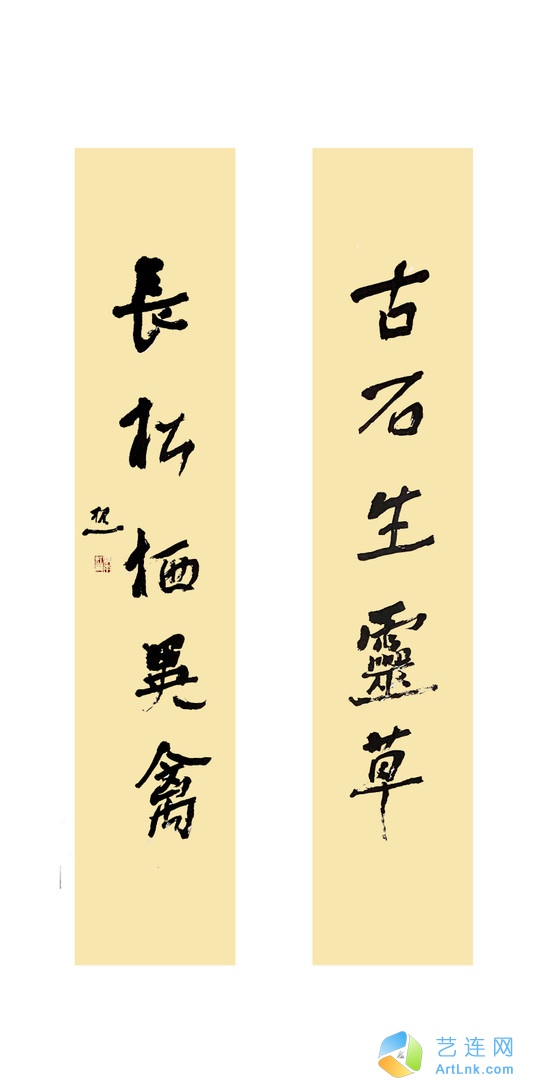 古石生靈草
長松栖異禽
艺连网
ArtLnk.com